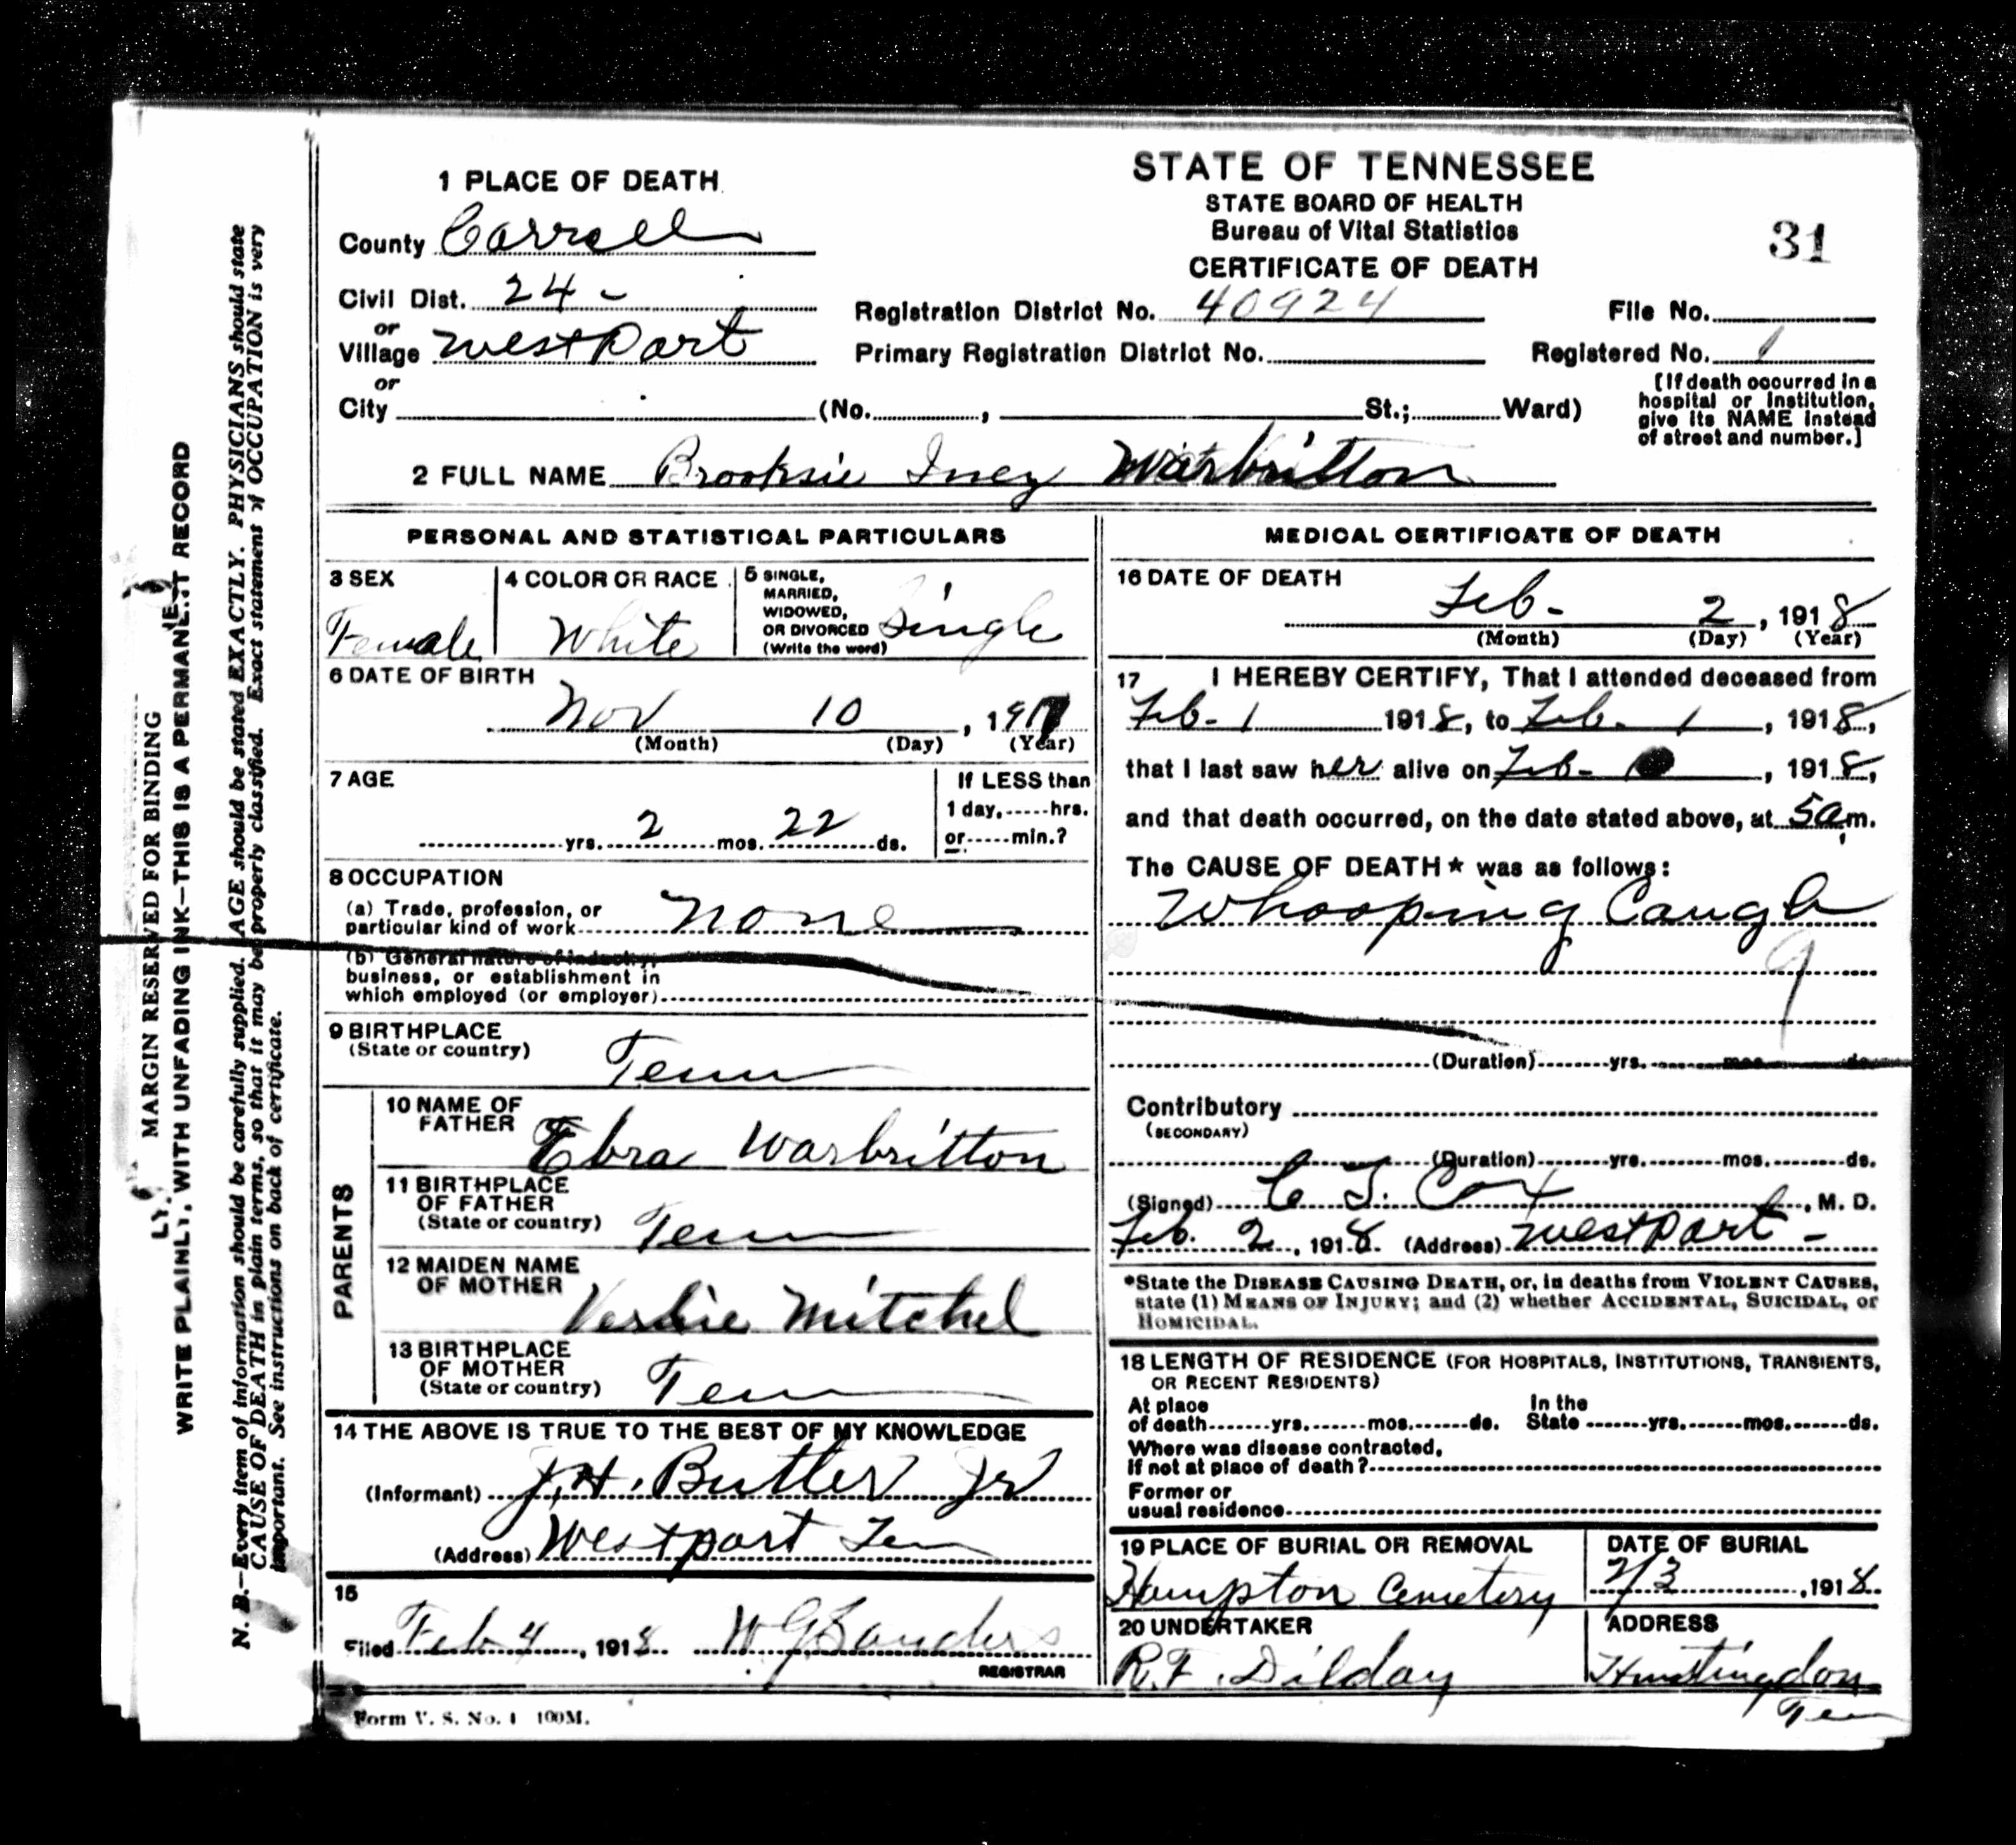 1 PLACE OF DEATH
County Carroll
Civil Dist. 24 -
or
Village Westport
or
City (No. , St.; Ward)
STATE OF TENNESSEE
STATE BOARD OF HEALTH
Bureau of Vital Statistics
CERTIFICATE OF DEATH
31
Registration District No. 40924
File No.
Primary Registration District No.
Registered No. 1
[If death occurred in a
hospital or institution,
give its NAME instead
of street and number.]
2 FULL NAME Brooksie Inez Warbritton
PERSONAL AND STATISTICAL PARTICULARS
3 SEX
Female
4 COLOR OR RACE
White
5 SINGLE,
MARRIED,
WIDOWED,
OR DIVORCED
(Write the word)
Single
6 DATE OF BIRTH
Nov 10, 1917
(Month) (Day) (Year)
7 AGE
yrs. 2 mos. 22 ds.
If LESS than
1 day, hrs.
or min.?
8 OCCUPATION
(a) Trade, profession, or
particular kind of work None
(b) General nature of industry,
business, or establishment in
which employed (or employer)
9 BIRTHPLACE
(State or country)
Tenn
PARENTS
10 NAME OF
FATHER
Ebra Warbritton
11 BIRTHPLACE
OF FATHER
(State or country)
Tenn
12 MAIDEN NAME
OF MOTHER
Mitchel
13 BIRTHPLACE
OF MOTHER
(State or country)
Tenn
14 THE ABOVE IS TRUE TO THE BEST OF MY KNOWLEDGE
(Informant) J.H. Butler Jr
(Address) Westport Ten
15
Filed Feb 4, 1918 W G Sanders
REGISTRAR
Form V. S. No. 1 100M.
MEDICAL CERTIFICATE OF DEATH
16 DATE OF DEATH
Feb- 2, 1918
(Month) (Day) (Year)
17 I HEREBY CERTIFY, That I attended deceased from
Feb- 1 1918, to Feb. 1, 1918,
that I last saw her alive on Feb- 1, 1918,
and that death occurred, on the date stated above, at 5 a,m.
The CAUSE OF DEATH* was as follows:
Whooping Caugh
9
(Duration) yrs. mos. ds.
Contributory
(SECONDARY)
(Duration) yrs. mos. ds.
(Signed) C T. Cox, M. D.
Feb. 2, 1918. (Address) Westport -
*State the DISEASE CAUSING DEATH, or, in deaths from VIOLENT CAUSES,
state (1) MEANS OF INJURY; and (2) whether ACCIDENTAL, SUICIDAL, or
HOMICIDAL.
18 LENGTH OF RESIDENCE (FOR HOSPITALS, INSTITUTIONS, TRANSIENTS,
OR RECENT RESIDENTS)
At place
of death yrs. mos. ds.
In the
State yrs. mos. ds.
Where was disease contracted,
If not at place of death?
Former or
usual residence
19 PLACE OF BURIAL OR REMOVAL
Hampton Cemetery
DATE OF BURIAL
2/3, 1918.
20 UNDERTAKER
R.F. Dilday
ADDRESS
Huntingdon
Ten
MARGIN RESERVED FOR BINDING
WRITE PLAINLY, WITH UNFADING INK—THIS IS A PERMANENT RECORD
N. B.—Every item of information should be carefully supplied. AGE should be stated EXACTLY. PHYSICIANS should state
CAUSE OF DEATH in plain terms, so that it may be properly classified. Exact statement of OCCUPATION is very
important. See instructions on back of certificate.